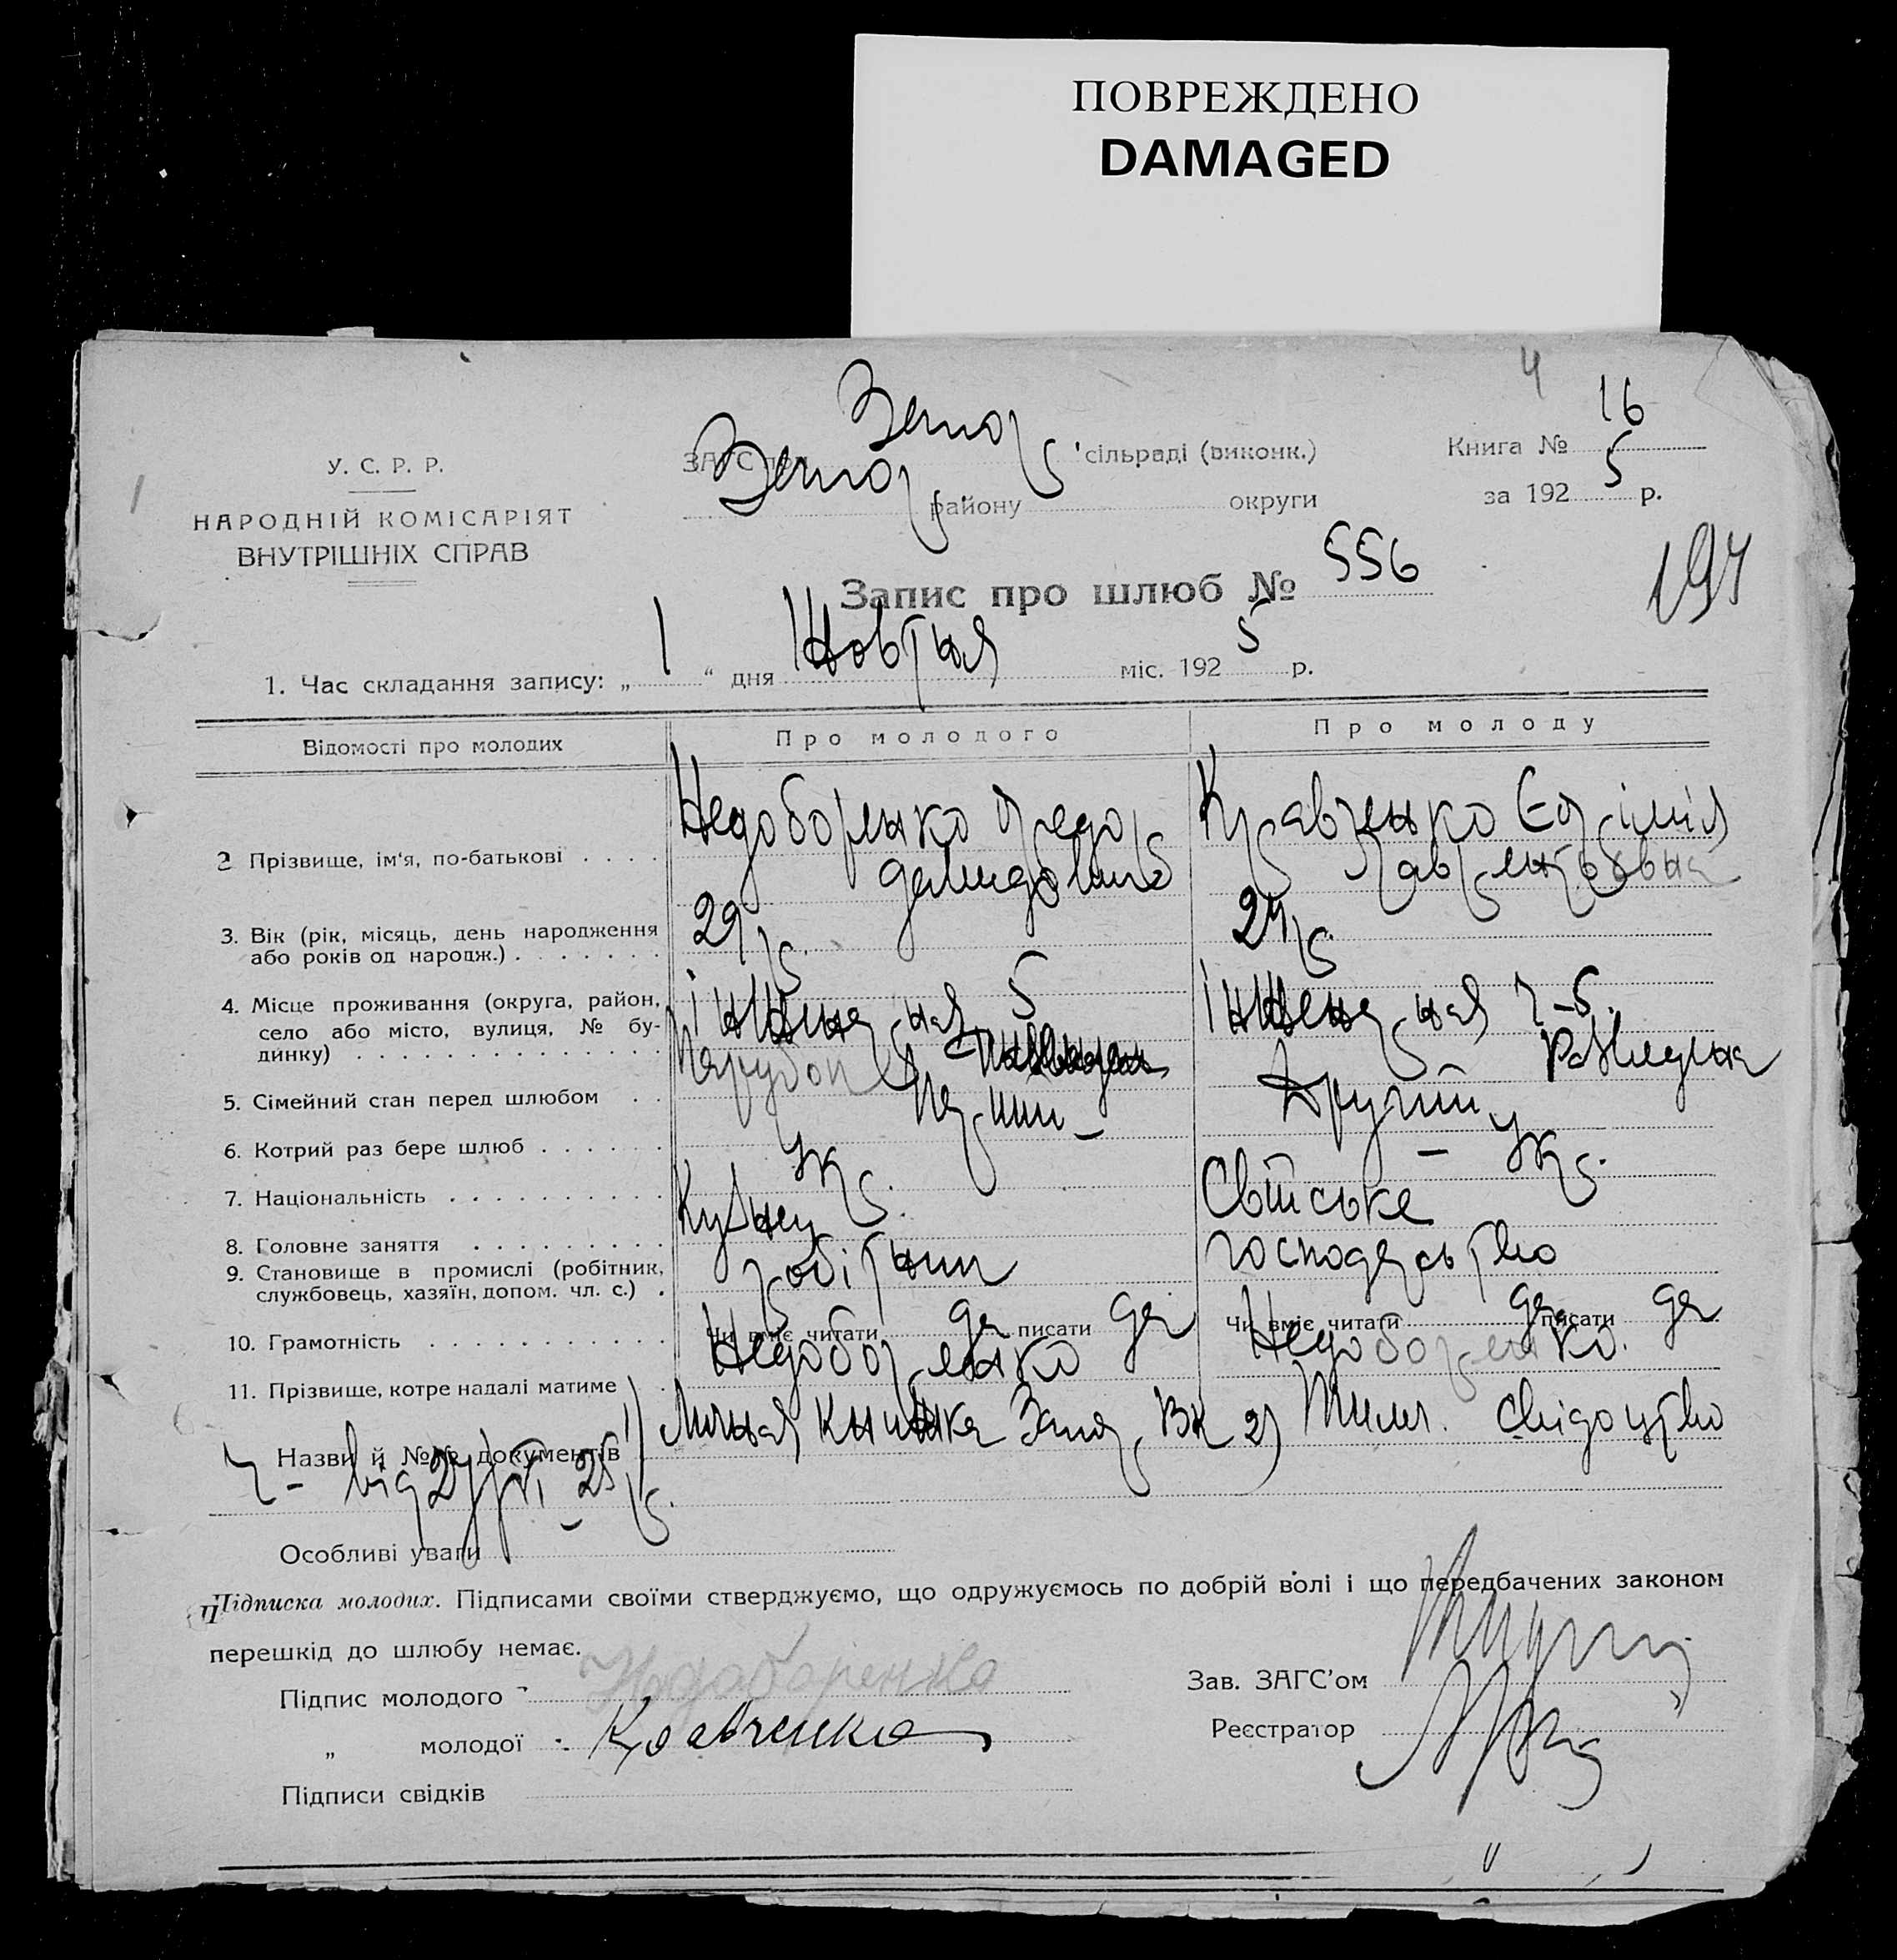 ПОВРЕЖДЕНО
DAMAGED
4
У. С. Р. Р.
НАРОДНІЙ КОМІСАРІЯТ
ВНУТРІШНІХ СПРАВ
ЗАГС при Запор сільраді (виконк.)
Запор району округи
Книга № 16
за 192 5 р.
Запис про шлюб № 556
197
1. Час складання запису: „ 1 “ дня Жовтня міс. 192 5 р.
Відомості про молодих Про молодого Про молоду
2 Прізвище, ім'я, по-батькові . . . . Недоборенко Федор Кравченко
Демидович Лаврентьевна
3. Вік (рік, місяць, день народження
або років од народж.) . . . . . . . 29 р. 24 р.
4. Місце проживання (округа, район,
село або місто, вулиця, № бу-
динку) . . . . . . . . . . . . . . . Інженерная 5 Інженерная
5. Сімейний стан перед шлюбом . . Парубок Розведена
6. Котрий раз бере шлюб . . . . . . Перший Другий
7. Національність . . . . . . . . . . Укр. Укр.
8. Головне заняття . . . . . . . . . Кузнец Свійське
9. Становище в промислі (робітник,
службовець, хазяїн, допом. чл. с.) . робітник господарство
10. Грамотність . . . . . . . . . . . . Чи вміє читати да писати да Чи вміє читати да писати да
11. Прізвище, котре надалі матиме . Недоборенко Недоборенко.
Назви й №№ документів 1) Личная книжка Запор ВК 2) Тим. свідоцтво
від 25 р.
Особливі уваги
Підписка молодих. Підписами своїми стверджуємо, що одружуємось по добрій волі і що передбачених законом
перешкід до шлюбу немає.
Підпис молодого Недоборенко
„ молодої Кравченко
Підписи свідків
Зав. ЗАГС'ом
Реєстратор